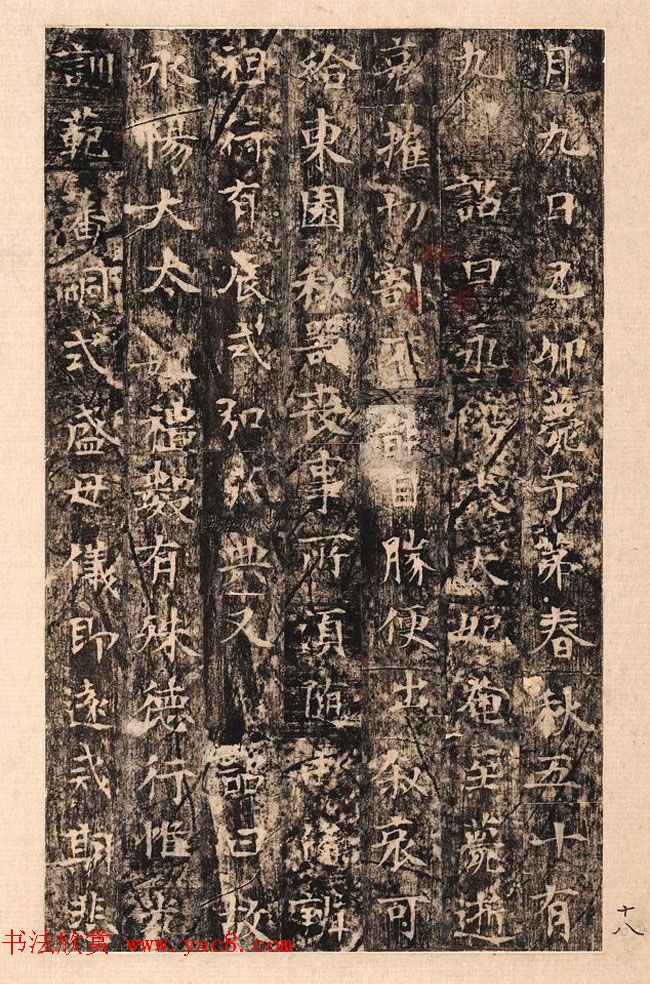 月九日乙卯薨于第春秋五十有
九 詔曰永陽太太妃奄至薨逝
哀摧切割不能自勝便出敘哀可
給東園秘器喪事所須隨由備辦
祖行有辰式弘茂典又 詔曰故
永陽太太妃禮數有殊德行惟光
訓範蕃嗣式盛母儀即遠戒期悲
十八
书法欣赏 www.yac8.com